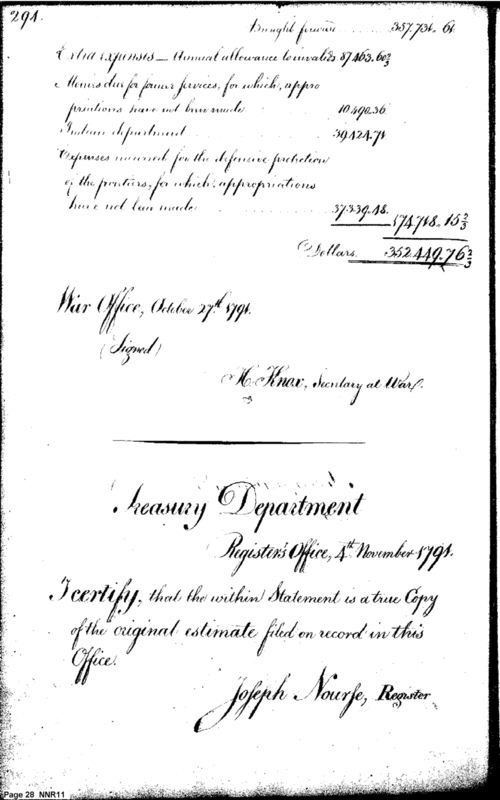 291.
Brought forward ........ 357.731. 61
Extra expenses — Annual allowance to invalids 87463.60 2/3
Monies due for former services, for which, appro
priations have not been made 10.490.36
Indian department 39.424.71
Expenses incurred for the defensive protection
of the frontiers, for which appropriations
have not been made 37.339.48
174.718. 15 2/3
Dollars 352.449.76 2/3
War Office, October 27th 1791.
(Signed)
H. Knox, Secretary at War.
Treasury Department
Register's Office, 4th November 1791.
I certify, that the within Statement is a true Copy
of the original estimate filed on record in this
Office.
Joseph Nourse, Register
Page 28 NNR11